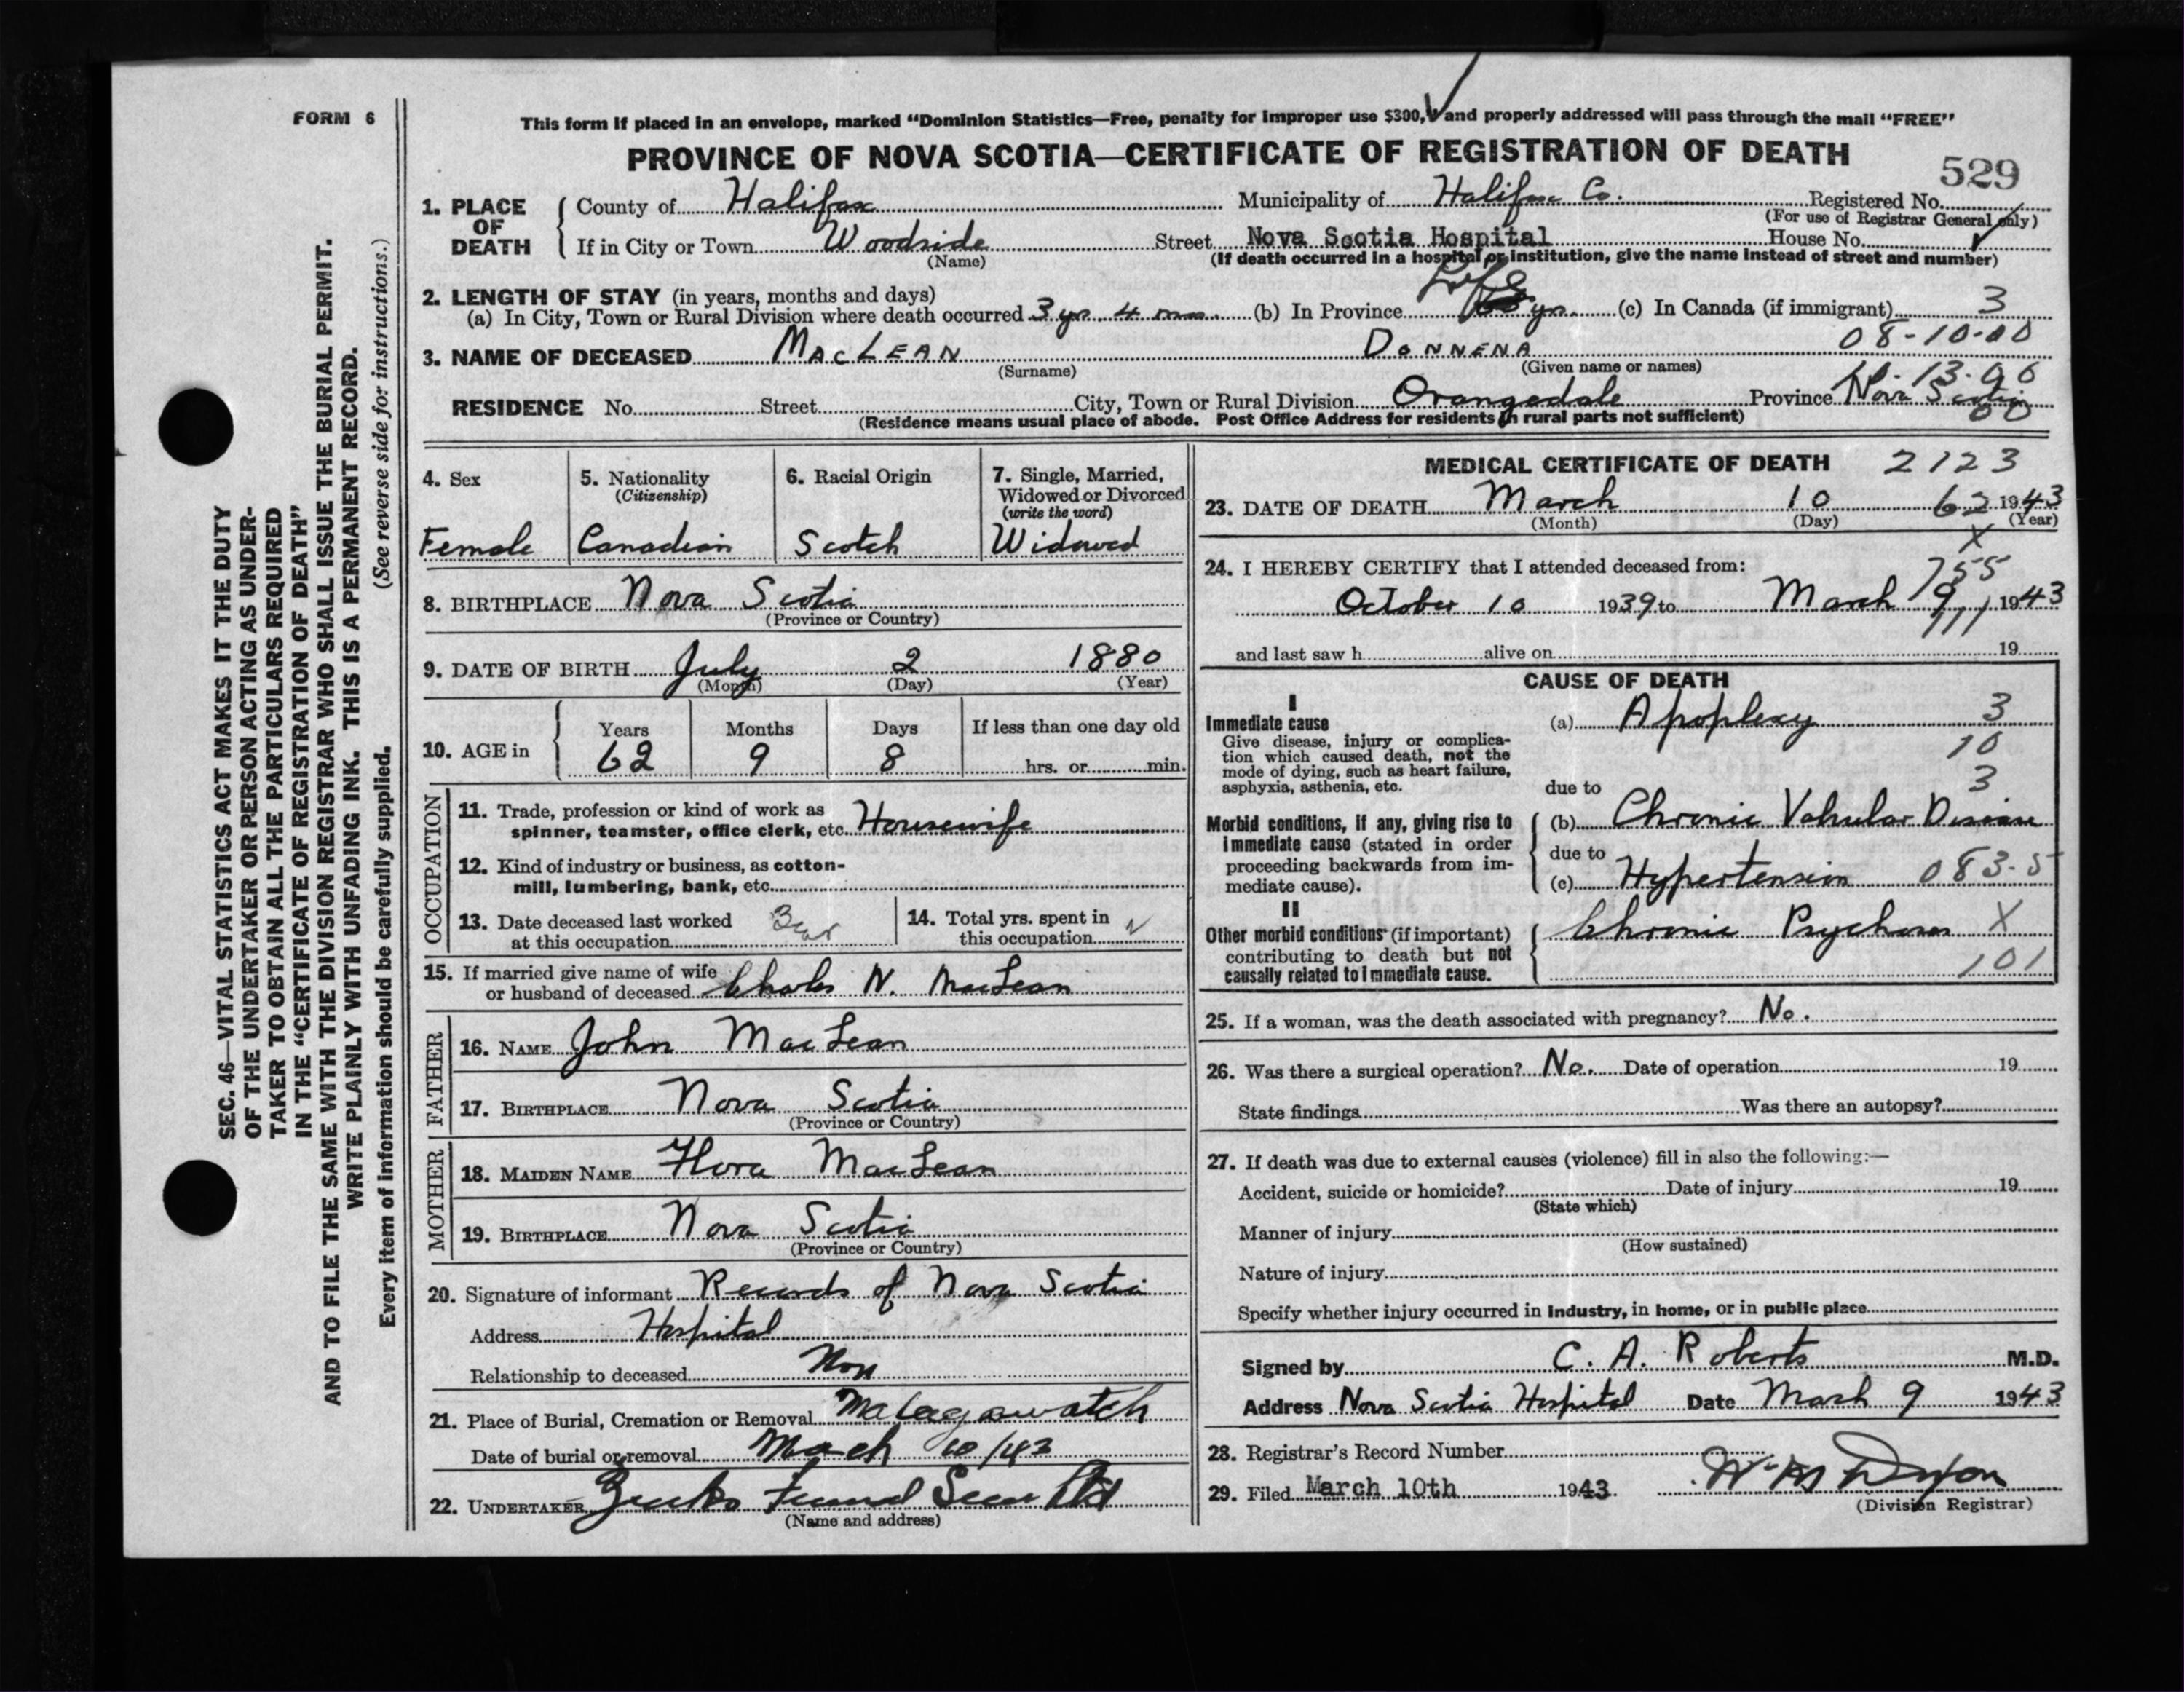 FORM 6
This form if placed in an envelope, marked "Dominion Statistics—Free, penalty for improper use $300, and properly addressed will pass through the mail "FREE"
PROVINCE OF NOVA SCOTIA—CERTIFICATE OF REGISTRATION OF DEATH
529
1. PLACE OF DEATH
County of Halifax Municipality of Halifax Co. Registered No.
(For use of Registrar General only)
If in City or Town Woodside Street Nova Scotia Hospital House No.
(Name) (If death occurred in a hospital or institution, give the name instead of street and number)
2. LENGTH OF STAY (in years, months and days)
(a) In City, Town or Rural Division where death occurred 3 yrs 4 mos (b) In Province Life yrs. (c) In Canada (if immigrant) 3
08-10-00
3. NAME OF DECEASED MacLEAN DONNENA
(Surname) (Given name or names)
RESIDENCE No. Street City, Town or Rural Division Orangedale Province Nova Scotia
00
(Residence means usual place of abode. Post Office Address for residents in rural parts not sufficient)
4. Sex Female
5. Nationality (Citizenship) Canadian
6. Racial Origin Scotch
7. Single, Married, Widowed or Divorced (write the word) Widowed
8. BIRTHPLACE Nova Scotia
(Province or Country)
9. DATE OF BIRTH July 2 1880
(Month) (Day) (Year)
10. AGE in Years Months Days If less than one day old
62 9 8 hrs. or min.
OCCUPATION
11. Trade, profession or kind of work as
spinner, teamster, office clerk, etc. Housewife
12. Kind of industry or business, as cotton-
mill, lumbering, bank, etc.
13. Date deceased last worked
at this occupation
14. Total yrs. spent in
this occupation
15. If married give name of wife
or husband of deceased Charles N. MacLean
FATHER
16. NAME John MacLean
17. BIRTHPLACE Nova Scotia
(Province or Country)
MOTHER
18. MAIDEN NAME Flora MacLean
19. BIRTHPLACE Nova Scotia
(Province or Country)
20. Signature of informant Records of Nova Scotia
Address Hospital
Relationship to deceased Non
21. Place of Burial, Cremation or Removal Malagawatch
Date of burial or removal March 10/43
22. UNDERTAKER
(Name and address)
MEDICAL CERTIFICATE OF DEATH 2123
23. DATE OF DEATH March 10 62 1943
(Month) (Day) (Year)
X
24. I HEREBY CERTIFY that I attended deceased from:
755
October 10 1939 to March 9 1943
111
and last saw h alive on 19
CAUSE OF DEATH
I
Immediate cause (a) Apoplexy 3
Give disease, injury or complica-
tion which caused death, not the
mode of dying, such as heart failure,
asphyxia, asthenia, etc.
10
due to 3
Morbid conditions, if any, giving rise to
immediate cause (stated in order
proceeding backwards from im-
mediate cause).
(b) Chronic Valvular Disease
due to
(c) Hypertension 083-5
II
Other morbid conditions (if important)
contributing to death but not
causally related to immediate cause.
Chronic Psychoses X
101
25. If a woman, was the death associated with pregnancy? No.
26. Was there a surgical operation? No. Date of operation 19
State findings Was there an autopsy?
27. If death was due to external causes (violence) fill in also the following:—
Accident, suicide or homicide? Date of injury 19
(State which)
Manner of injury
(How sustained)
Nature of injury
Specify whether injury occurred in industry, in home, or in public place
Signed by C. A. Roberts M.D.
Address Nova Scotia Hospital Date March 9 1943
28. Registrar's Record Number
29. Filed March 10th 1943.
(Division Registrar)
SEC. 46—VITAL STATISTICS ACT MAKES IT THE DUTY
OF THE UNDERTAKER OR PERSON ACTING AS UNDER-
TAKER TO OBTAIN ALL THE PARTICULARS REQUIRED
IN THE "CERTIFICATE OF REGISTRATION OF DEATH"
AND TO FILE THE SAME WITH THE DIVISION REGISTRAR WHO SHALL ISSUE THE BURIAL PERMIT.
WRITE PLAINLY WITH UNFADING INK. THIS IS A PERMANENT RECORD.
(See reverse side for instructions.)
Every item of information should be carefully supplied.